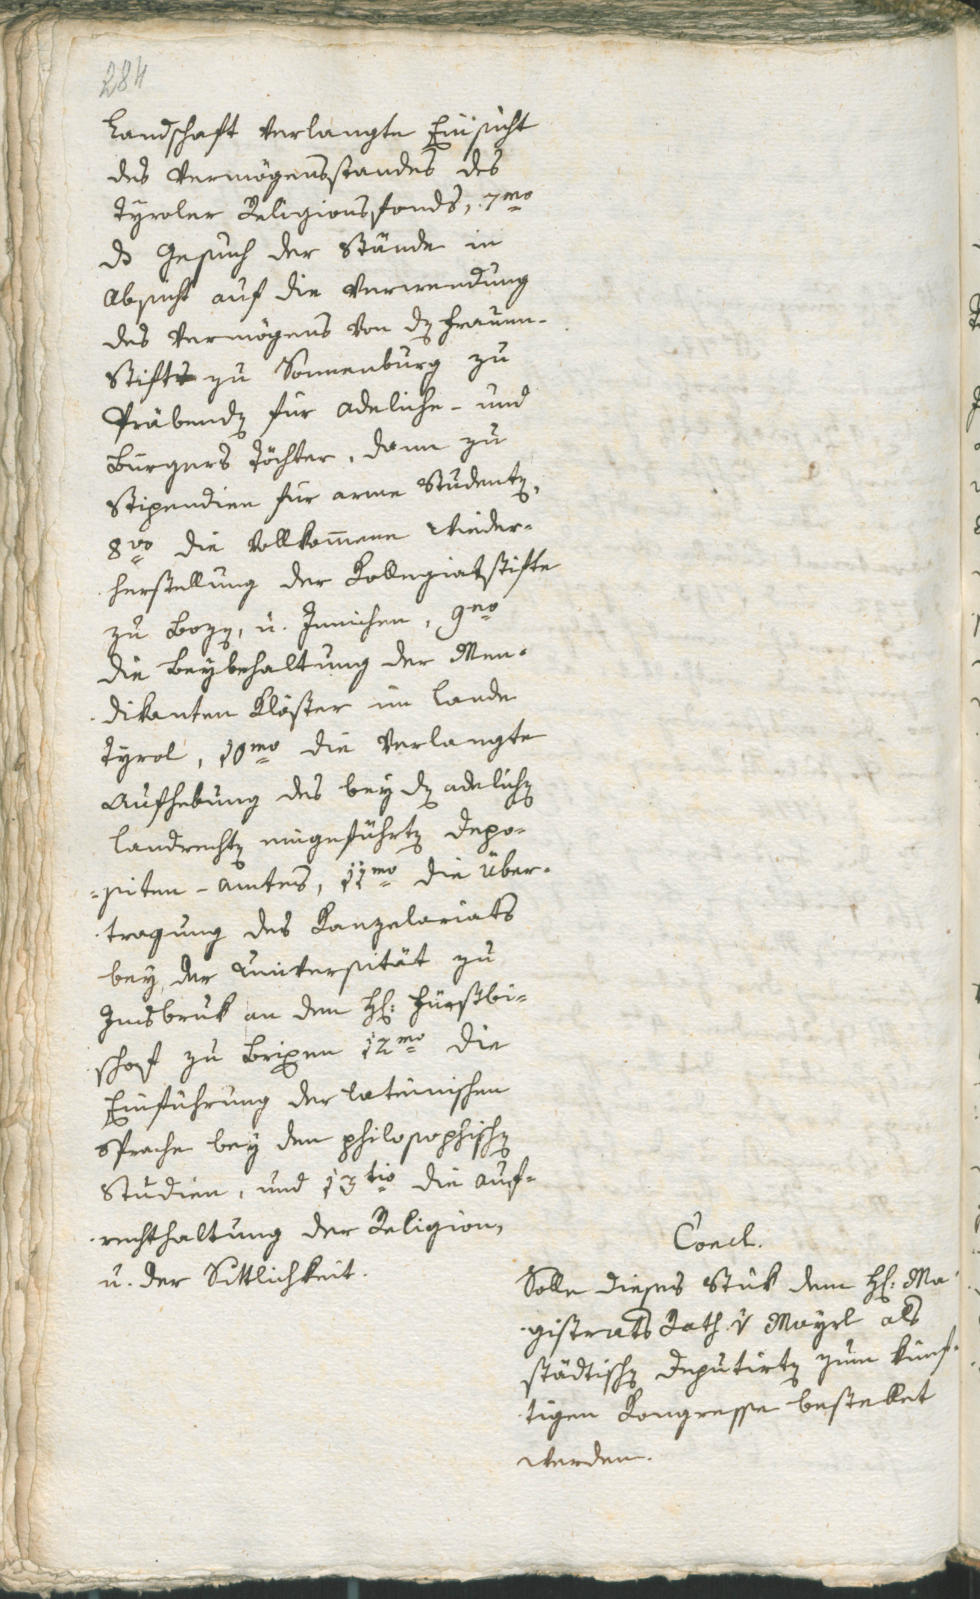 284
Landschaft verlangte Einsicht
des Vermögensstandes des
Tyroler Religionsfonds, 7mo
ds Gesuch der Stände in
Absicht auf die Verwendung
des Vermögens von dn Frauen-
Stift zu Sonnenburg zu
Präbendn für adeliche- und
Bürgers Töchter, dann zu
Stipendien für arme Studentn,
8vo die vollkom̄ene Wieder-
herstellung der Kollegiatstifte
zu Bozn, u. Innichen, 9no
die Beybehaltung der Men-
dikanten Klöster im Lande
Tyrol, 10mo die verlangte
Aufhebung des bey dn adelichn
Landrechtn eingeführtn Depo-
siten-Amtes, 11mo die Über-
tragung des Kanzelariats
bey der Universität zu
Innsbruk an den H: Fürstbi-
schof zu Brixen 12mo die
Einführung der lateinischen
Sprache bey den philosophischn
Studien, und 13tio die Auf-
rechthaltung der Religion,
u. der Sittlichkeit.
Concl.
Solle dieses Stük dem H: Ma-
gistrats Rath v Mayrl als
städtischn Deputirtn zum künf-
tigen Kongresse bestellet
werden.